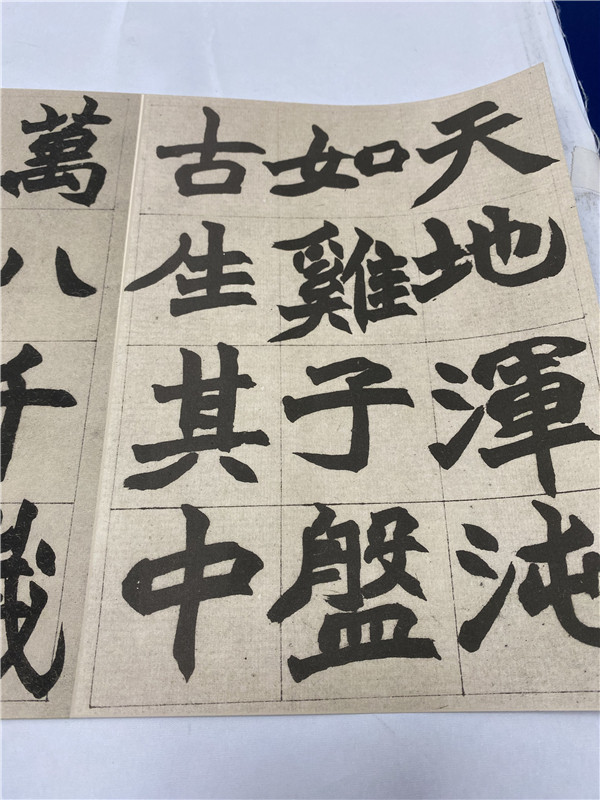 天地渾沌
如雞子盤
古生其中
萬八千歲